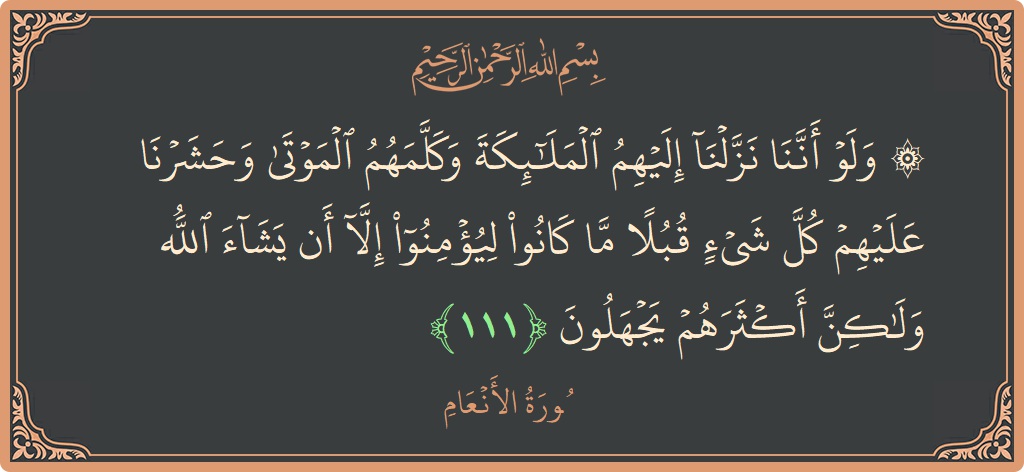 بِسْمِ اللَّهِ الرَّحْمَٰنِ الرَّحِيمِ
۞ وَلَوْ أَنَّنَا نَزَّلْنَآ إِلَيْهِمُ ٱلْمَلَٰٓئِكَةَ وَكَلَّمَهُمُ ٱلْمَوْتَىٰ وَحَشَرْنَا
عَلَيْهِمْ كُلَّ شَىْءٍۢ قُبُلًۭا مَّا كَانُوا۟ لِيُؤْمِنُوٓا۟ إِلَّآ أَن يَشَآءَ ٱللَّهُ
وَلَٰكِنَّ أَكْثَرَهُمْ يَجْهَلُونَ ﴿١١١﴾
سُورَةُ الأَنْعَامِ